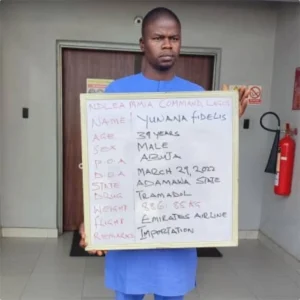 NDLEA MMIA COMMAND, LAGOS
NAME: YUNANA FIDELIS
AGE 39 YEARS
SEX MALE
P.O.A ABUJA
D.O.A MARCH 29, 2022
STATE ADAMAWA STATE
DRUG TRAMADOL
WEIGHT KG
FLIGHT EMIRATES AIRLINE
REMARKS IMPORTATION